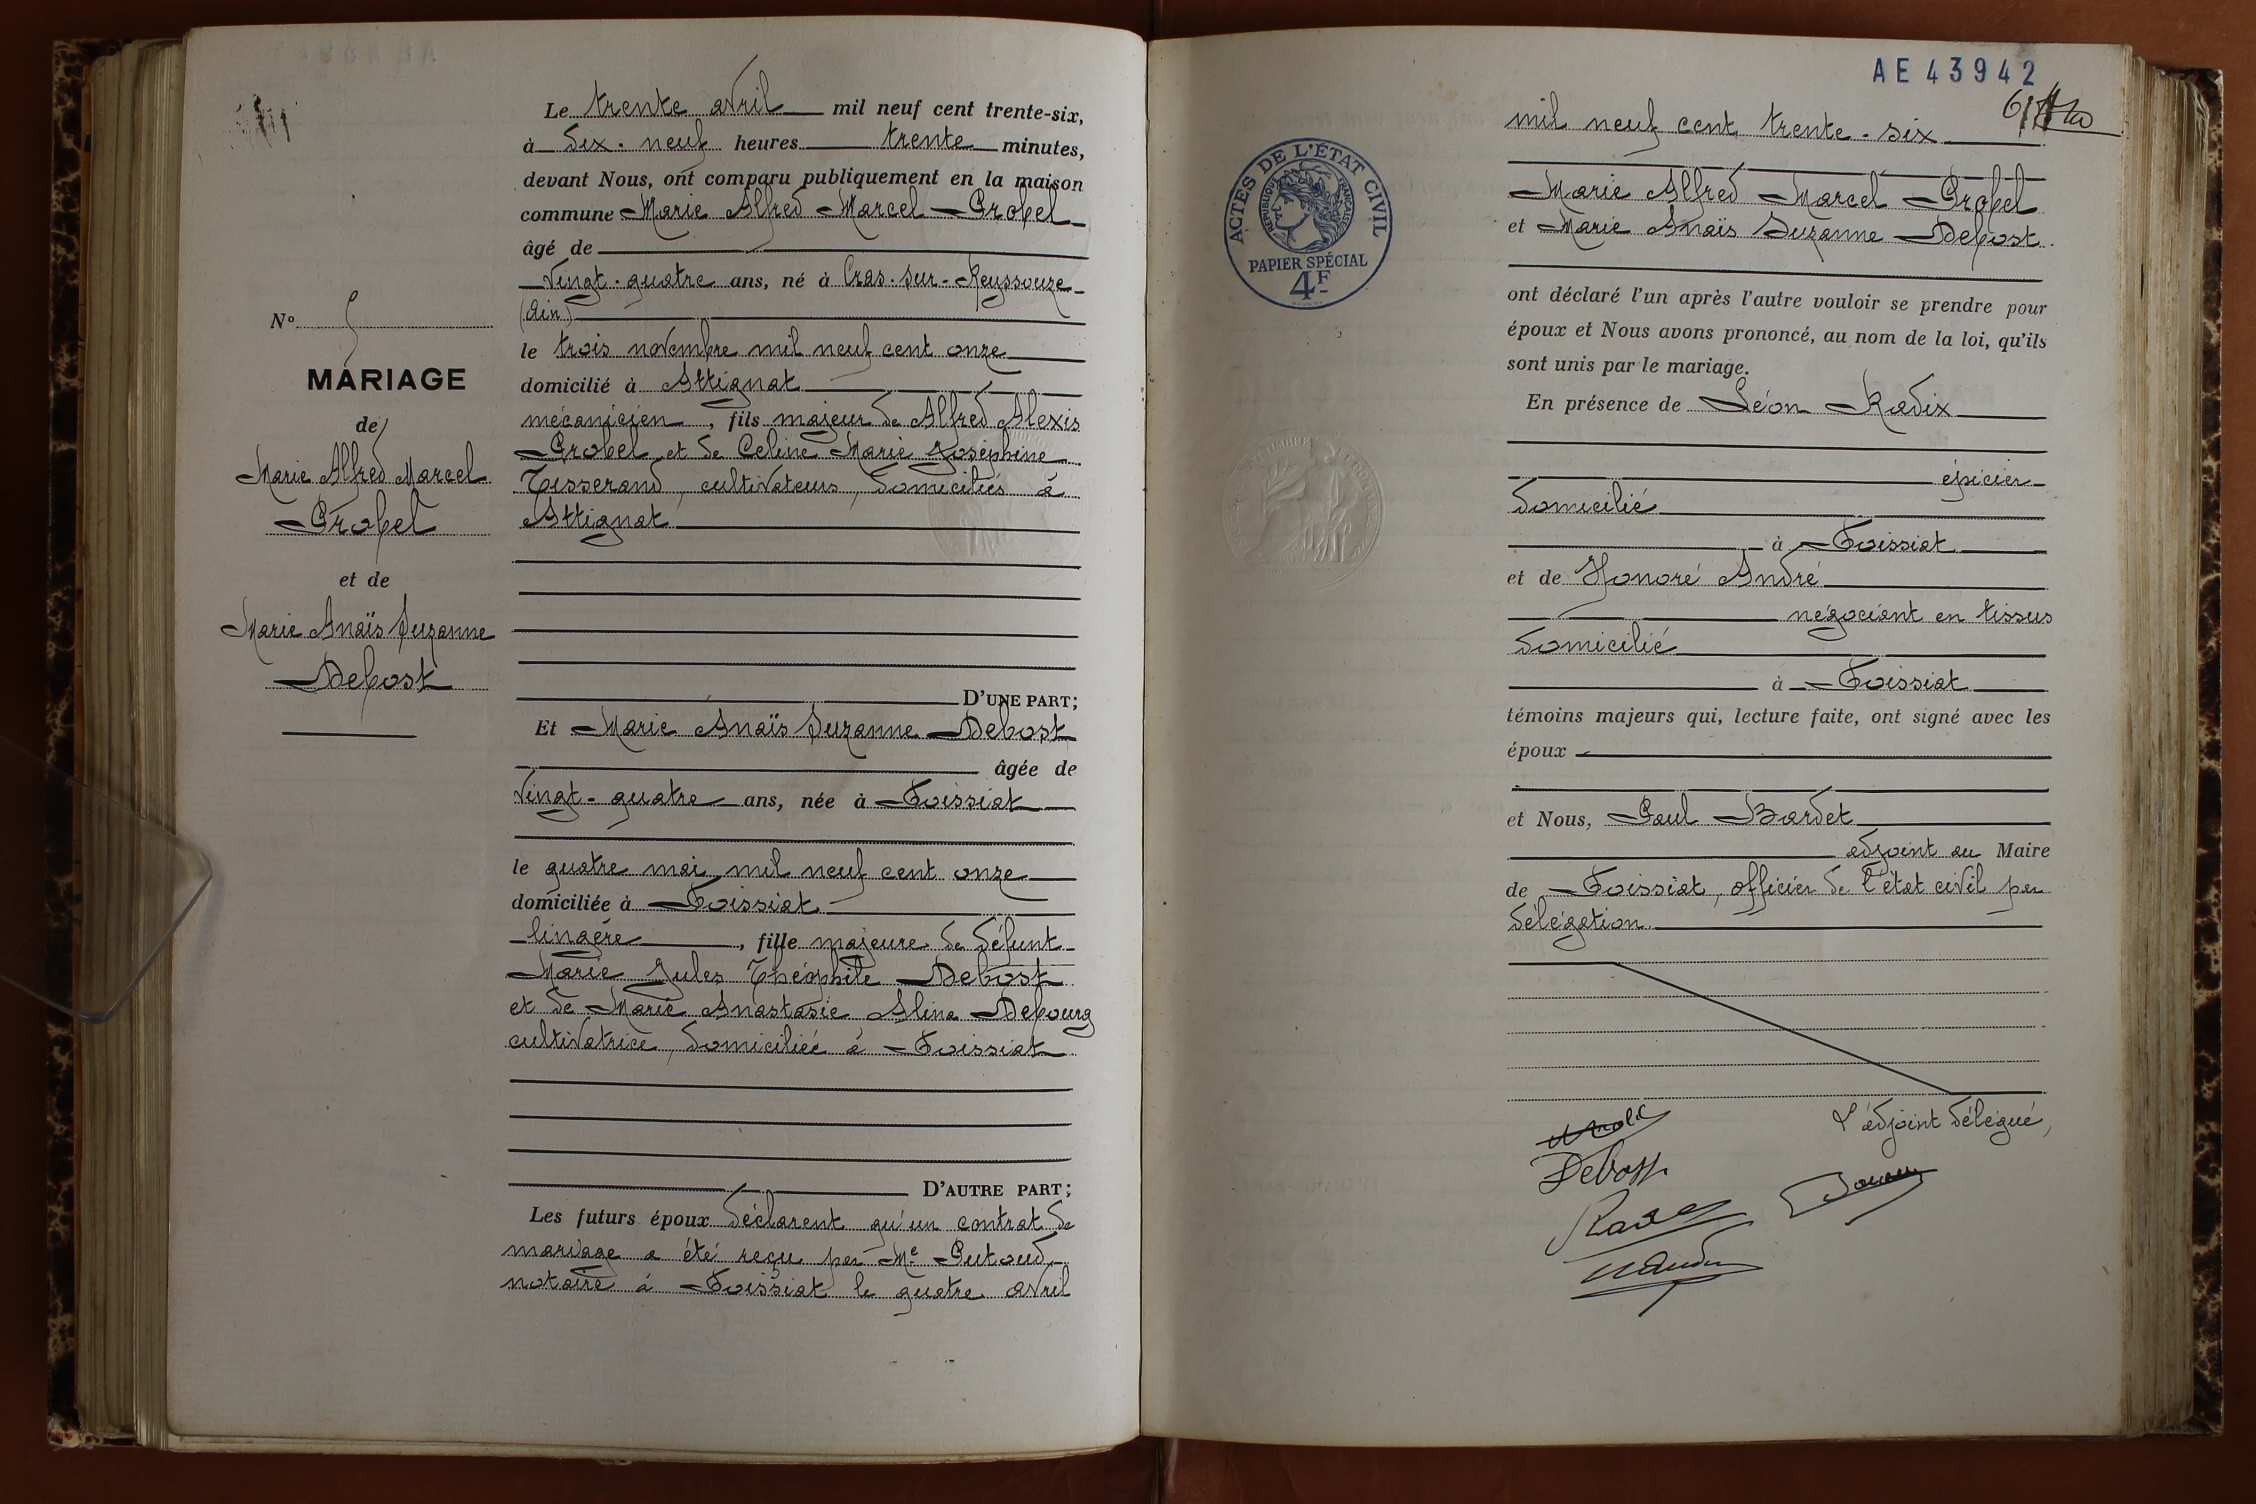 Le trente avril mil neuf cent trente-six,
à dix-neuf heures trente minutes,
devant Nous, ont comparu publiquement en la maison
commune Marie Alfred Marcel Probel
âgé de
vingt-quatre ans, né à Cras-sur-Reyssouze
(Ain)
le trois novembre mil neuf cent onze
domicilié à Attignat
mécanicien, fils majeur de Alfred Alexis
Probel et de Celine Marie Joséphine
Tisserand, cultivateurs, domiciliés à
Attignat
D'UNE PART;
Et Marie Anaïs Suzanne Debost
âgée de
vingt-quatre ans, née à Foissiat
le quatre mai mil neuf cent onze
domiciliée à Foissiat
lingère, fille majeure de défunt
Marie Jules Théophile Debost
et de Marie Anastasie Alina Debourg
cultivatrice, domiciliée à Foissiat
D'AUTRE PART;
Les futurs époux déclarent qu'un contrat de
mariage a été reçu par Me Putoud
notaire à Foissiat le quatre avril
N° 5
MARIAGE
de
Marie Alfred Marcel
Probel
et de
Marie Anaïs Suzanne
Debost
AE 43942
mil neuf cent trente-six
Marie Alfred Marcel Probel
et Marie Anaïs Suzanne Debost
ont déclaré l'un après l'autre vouloir se prendre pour
époux et Nous avons prononcé, au nom de la loi, qu'ils
sont unis par le mariage.
En présence de Léon Radix
épicier
domicilié
à Foissiat
et de Honoré André
négociant en tissus
domicilié
à Foissiat
témoins majeurs qui, lecture faite, ont signé avec les
époux
et Nous, Paul Bardet
adjoint au Maire
de Foissiat, officier de l'état civil par
délégation
L'adjoint délégué,
Debost
ACTES DE L'ÉTAT CIVIL
RÉPUBLIQUE FRANÇAISE
PAPIER SPÉCIAL
4F